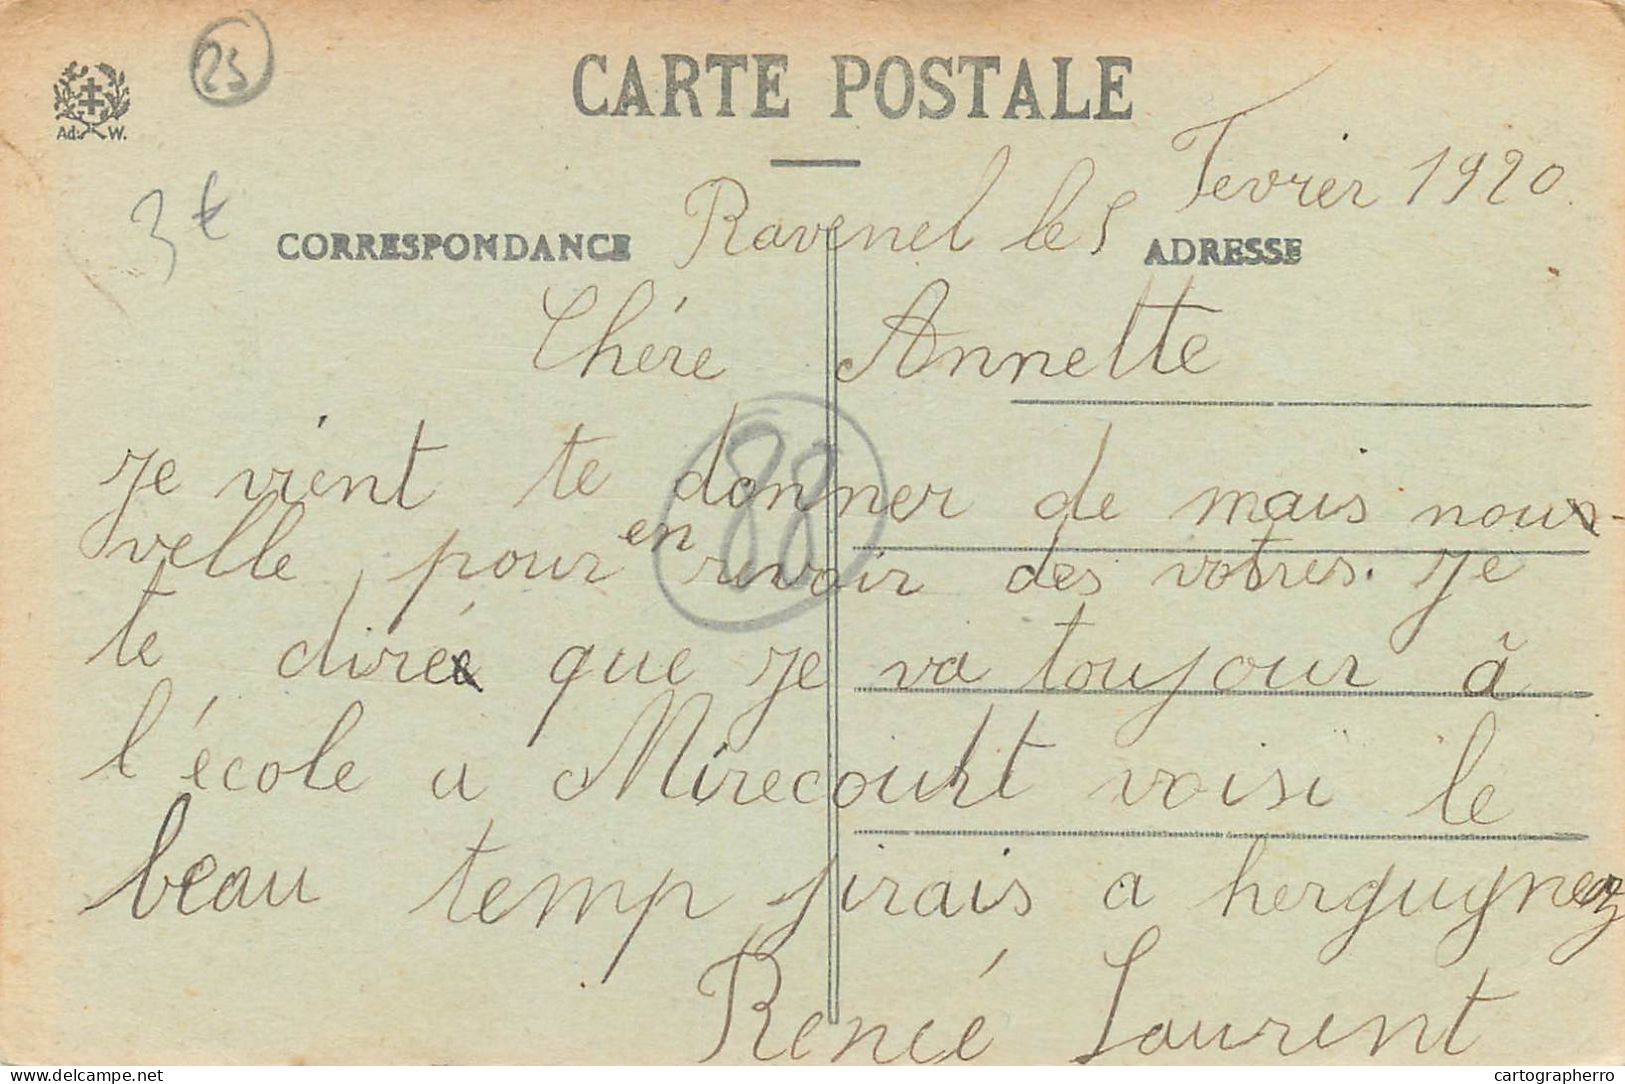 25
CARTE POSTALE
Ad. W.
3€
Ravenel le 5 Fevrier 1920
CORRESPONDANCE
ADRESSE
Chére Annette
88
Je vient te donner de mais nou-
velle pour en revoir des votres. Je
te diré que je va toujour à
l'école a Mirecourt voisi le
beau temp jirais a hergugnez
Renée Laurent
delcampe.net
cartographerro